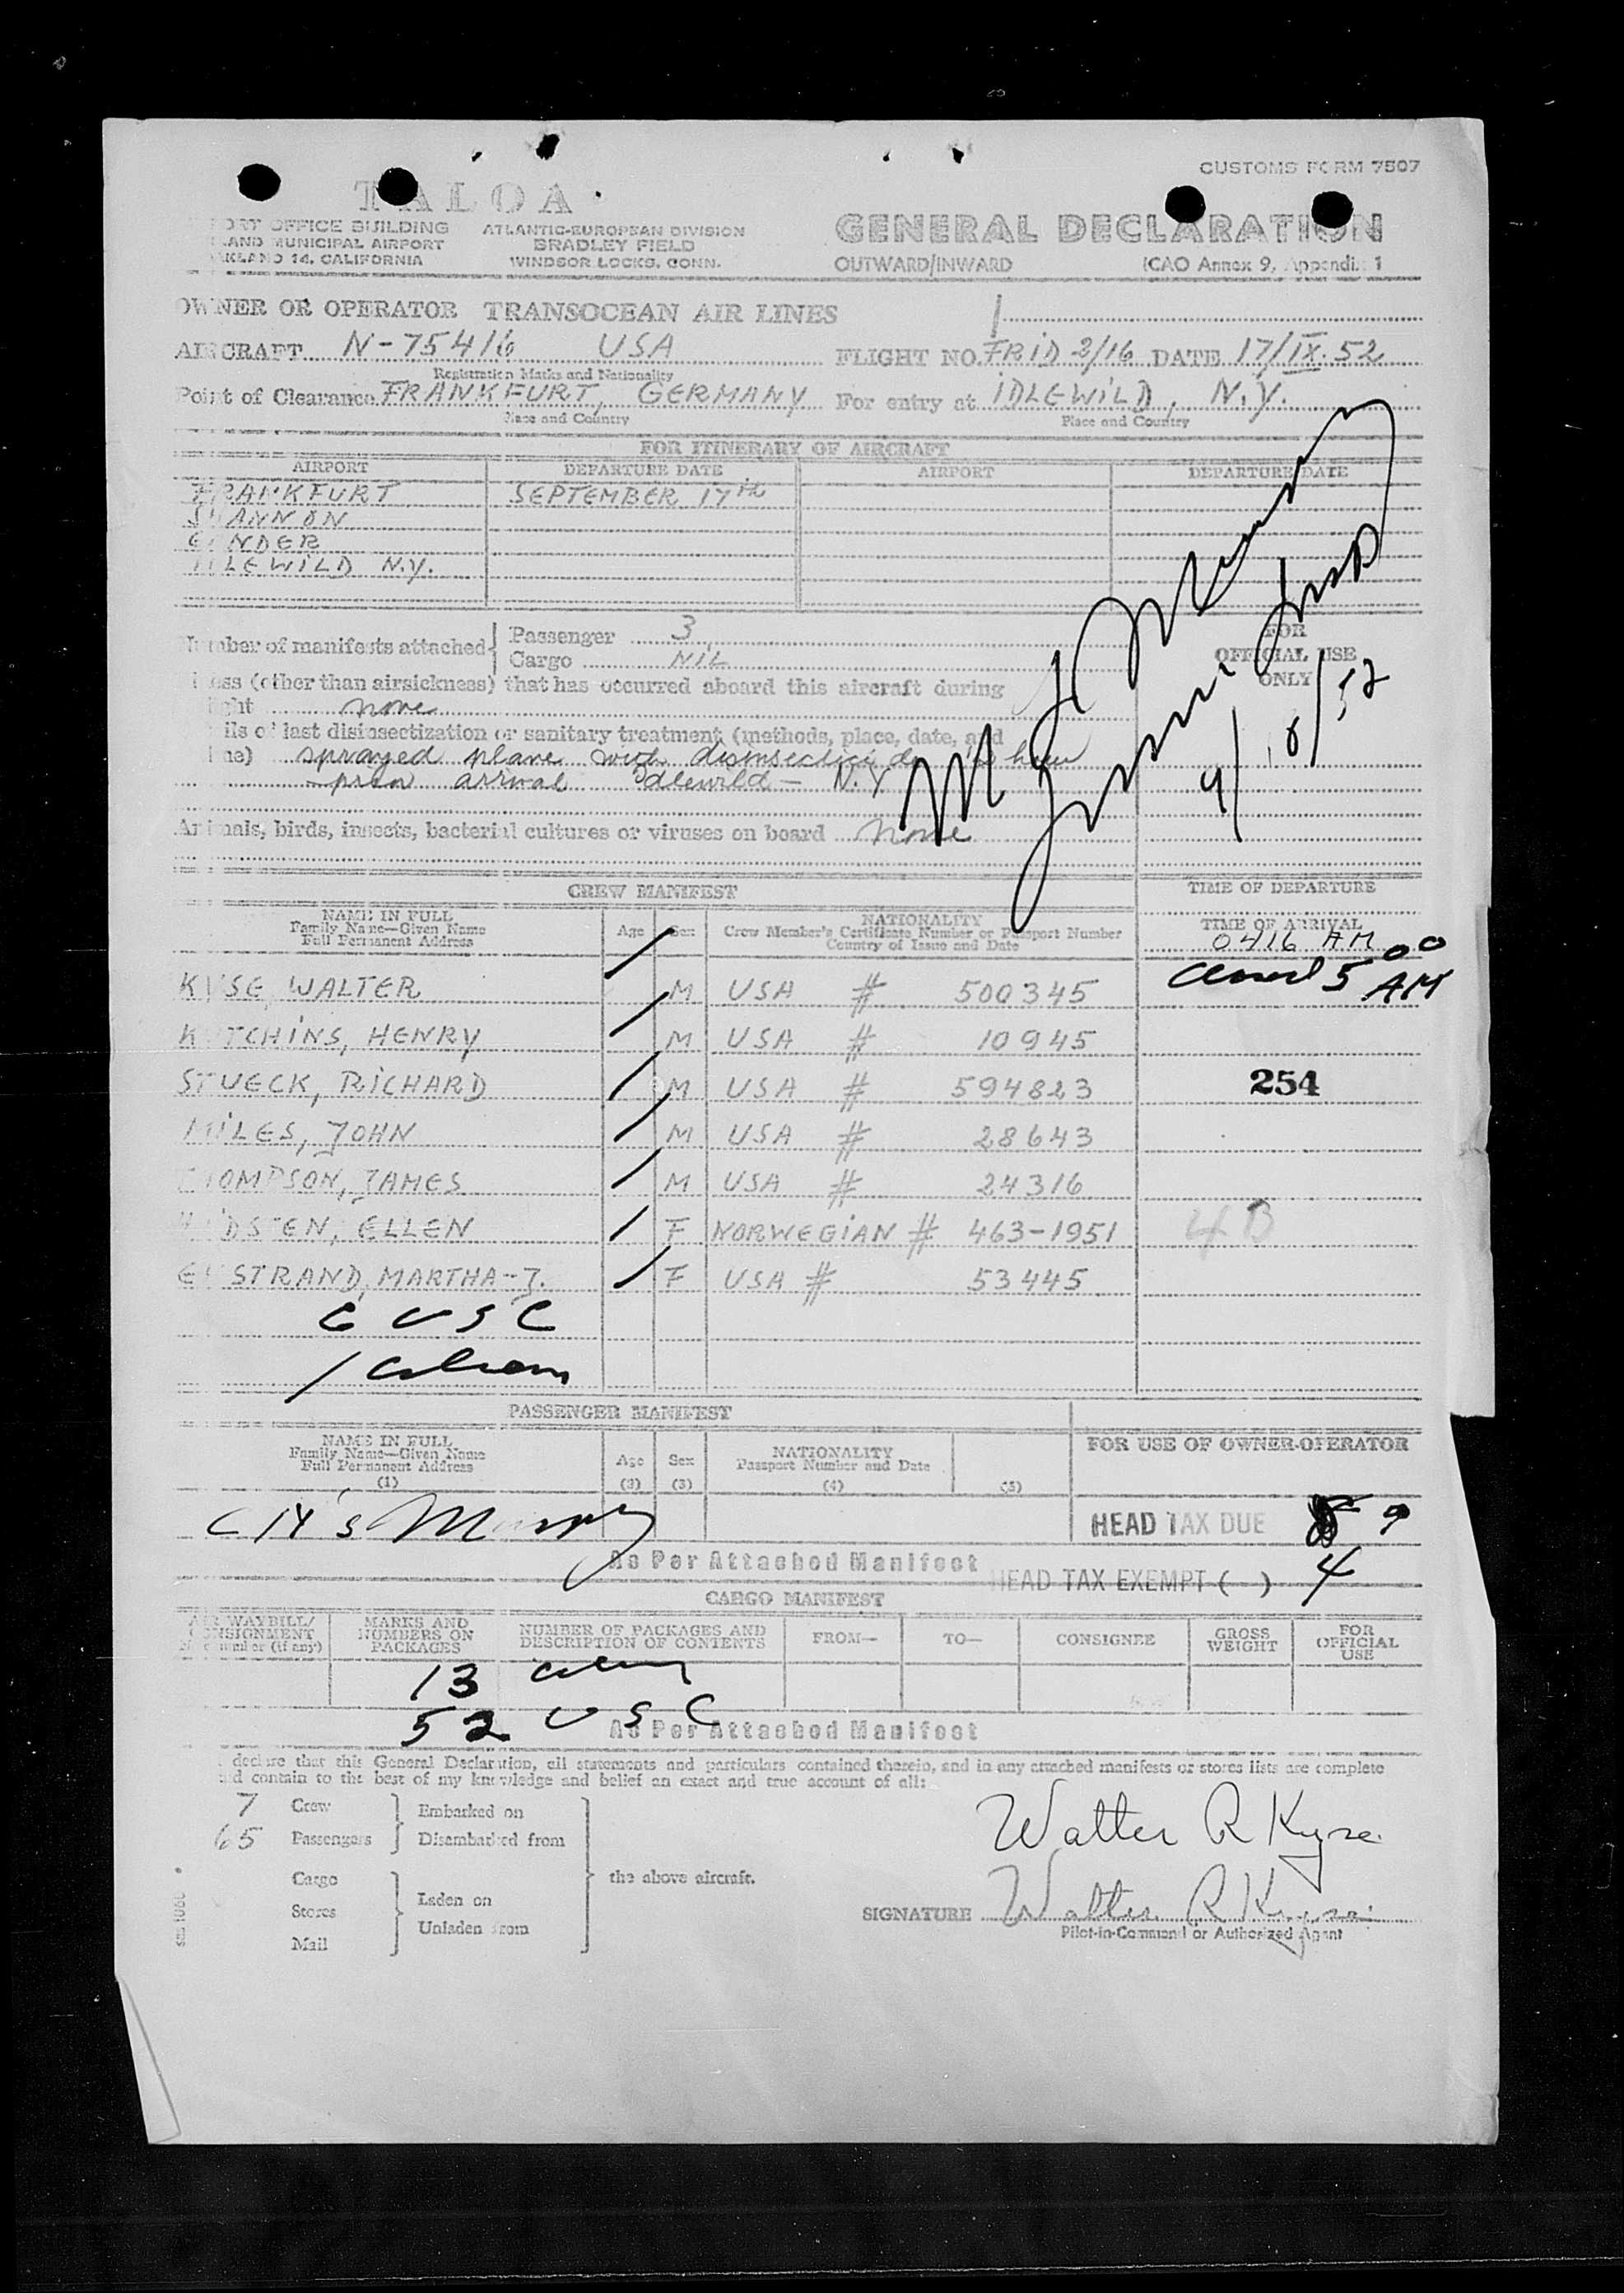 CUSTOMS FORM 7507
TALOA
ORT OFFICE BUILDING
LAND MUNICIPAL AIRPORT
AKLAND 14, CALIFORNIA
ATLANTIC-EUROPEAN DIVISION
BRADLEY FIELD
WINDSOR LOCKS, CONN.
GENERAL DECLARATION
OUTWARD/INWARD ICAO Annex 9, Appendix 1
OWNER OR OPERATOR TRANSOCEAN AIR LINES
AIRCRAFT N-75416 USA FLIGHT NO. FRID 2/16 DATE 17/IX.52
Registration Marks and Nationality
Point of Clearance FRANKFURT, GERMANY For entry at IDLEWILD, N.Y.
Place and Country Place and Country
FOR ITINERARY OF AIRCRAFT
AIRPORT DEPARTURE DATE AIRPORT DEPARTURE DATE
FRANKFURT SEPTEMBER 17th
SHANNON
GANDER
IDLEWILD N.Y.
Number of manifests attached { Passenger 3
Cargo NIL
FOR
OFFICIAL USE
ONLY
ness (other than airsickness) that has occurred aboard this aircraft during
ight none
ils of last disinsectization or sanitary treatment (methods, place, date, and
me) sprayed plane with
prior arrival Idlewild - N.Y
Animals, birds, insects, bacterial cultures or viruses on board None
CREW MANIFEST
TIME OF DEPARTURE
NAME IN FULL
Family Name—Given Name
Full Permanent Address
Age Sex
NATIONALITY
Crew Member's Certificate Number or Passport Number
Country of Issue and Date
TIME OF ARRIVAL
0416 AM
5 00 AM
KYSE, WALTER M USA # 500345
HUTCHINS, HENRY M USA # 10945
STUECK, RICHARD M USA # 594823
254
MILES, JOHN M USA # 28643
THOMPSON, JAMES M USA # 24316
DSTEN, ELLEN F NORWEGIAN # 463-1951
4B
STRAND, MARTHA-J. F USA # 53445
6 USC
1
PASSENGER MANIFEST
NAME IN FULL
Family Name—Given Name
Full Permanent Address
(1)
Age
(2)
Sex
(3)
NATIONALITY
Passport Number and Date
(4)
(5)
FOR USE OF OWNER-OPERATOR
HEAD TAX DUE 9
As Per Attached Manifest
HEAD TAX EXEMPT ( ) 4
CARGO MANIFEST
AIR WAYBILL/
CONSIGNMENT
number (if any)
MARKS AND
NUMBERS ON
PACKAGES
NUMBER OF PACKAGES AND
DESCRIPTION OF CONTENTS
FROM— TO— CONSIGNEE
GROSS
WEIGHT
FOR
OFFICIAL
USE
13 alien
52 USC
As Per Attached Manifest
declare that this General Declaration, all statements and particulars contained therein, and in any attached manifests or stores lists are complete
and contain to the best of my knowledge and belief an exact and true account of all:
7 Crew
65 Passengers
Embarked on
Disembarked from
Cargo
Stores
Mail
Laden on
Unladen from
the above aircraft.
Walter R Kyse
SIGNATURE Walter R Kyse
Pilot-in-Command or Authorized Agent